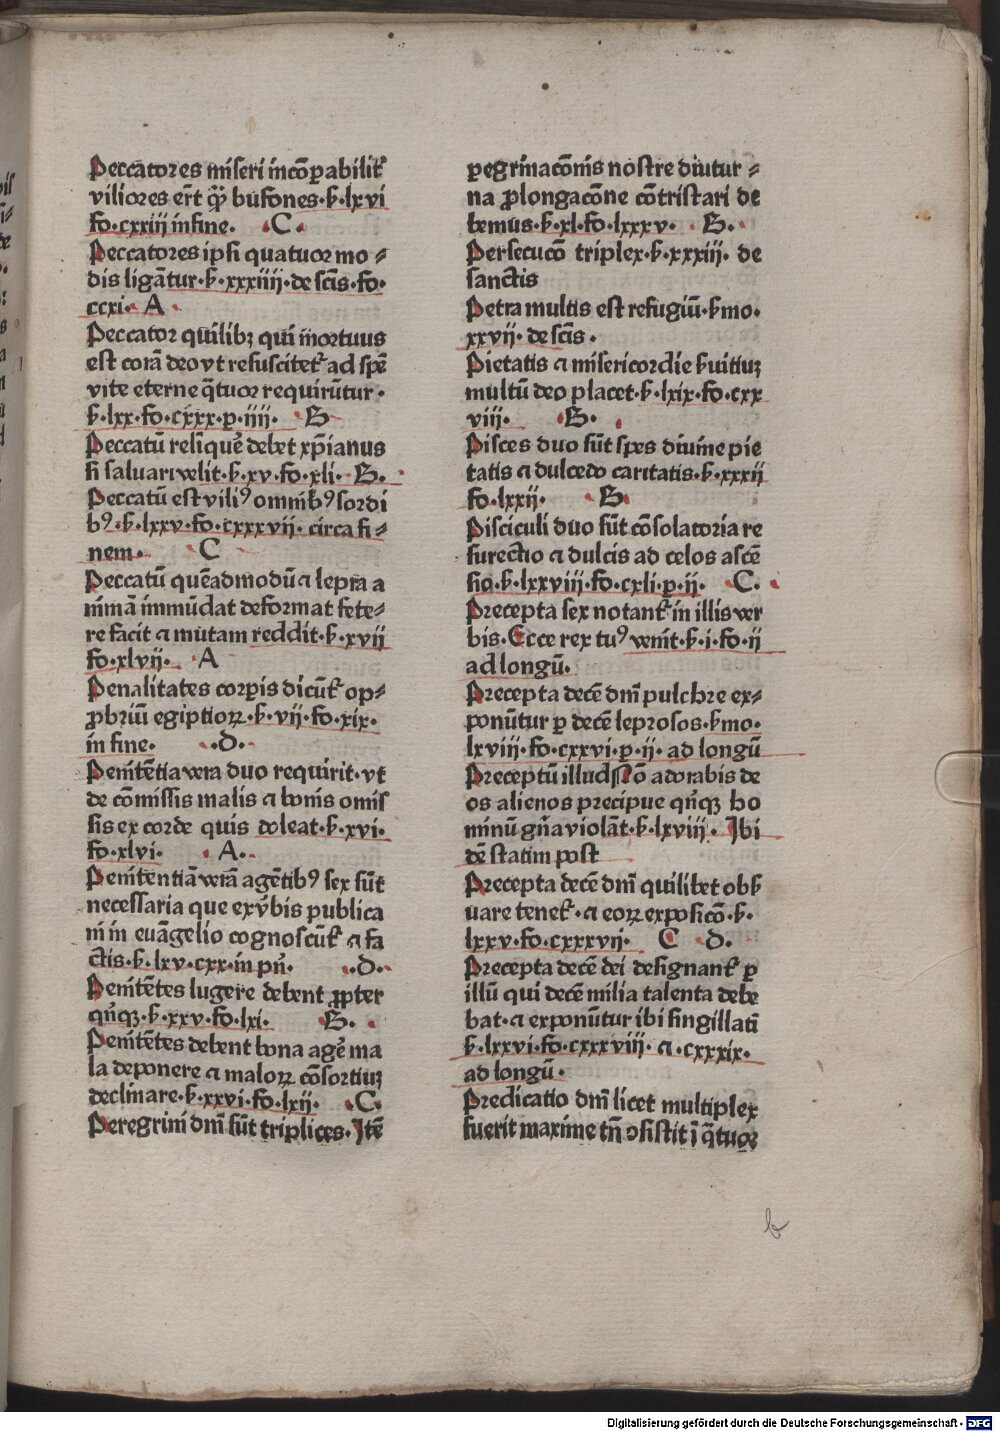 Peccatores miseri incōꝑabilit᷑
viliores er̄t qȝ̄ bufones·ẜ·lxvi
fo·cxxiij in fine. ·C·
Peccatores ipsi quatuor mo⸗
dis ligātur·ẜ·xxxiiij·de sc̄is·fo·
ccxi· A
Peccator quilibȝ qui mortuus
est corā deo vt resuscitet᷑ ad spē
vite eterne q̄tuor requirūtur·
ẜ·lxx·fo·cxxx·p·iiij· B
Peccatū relīquē debet xp̄ianus
si saluari velit·ẜ·xv·fo·xli· B·
Peccatū est viliꝰ omnībꝰ sordi
bꝰ·ẜ·lxxv·fo·cxxxvij·circa fi⸗
nem· C
Peccatū quēadmodū ⁊ lepra a
nimā immūdat deformat fete⸗
re facit ⁊ mutam reddit·ẜ·xvij
fo·xlvij· A
Penalitates corꝑis dicūt᷑ op⸗
ꝓbriū egiptioꝝ·ẜ·vij·fo·xix·
in fine· ·D·
Penitētia vera duo requirit·vt
de cōmissis malis ⁊ bonis omis
sis ex corde quis doleat·ẜ·xvi·
fo·xlvi· A·
Penitentiā verā agētibꝰ sex sūt
necessaria que ex v̄bis publica
ni in euāgelio cognoscūt᷑ ⁊ fa
ctis·ẜ·lxv·cxx·in pn̄· ·D·
Penitētes lugere debent ꝓpter
qn̄qȝ·ẜ·xxv·fo·lxi· B·
Penitētes debent bona agē ma
la deponere ⁊ maloꝝ cōsortiuȝ
declinare·ẜ·xxvi·fo·lxij· ·C·
Peregrini dn̄i sūt triplices·Itē
ꝑegrinacōnis nostre diutur⸗
na ꝓlongacōne cōtristari de
bemus·ẜ·xl·fo·lxxxv· B·
Persecucō triplex·ẜ·xxxiij·de
sanctis
Petra multis est refugiū·ẜmo·
xxvij·de scīs·
Pietatis ⁊ misericordie ẜuitiuȝ
multū deo placet·ẜ·lxix·fo·cxx
viij· B·
Pisces duo sūt spes diuine pie
tatis ⁊ dulcedo caritatis·ẜ·xxxij
fo·lxxij· B
Pisciculi duo sūt cōsolatoria re
surectio ⁊ dulcis ad celos ascē
sio·ẜ·lxxviij·fo·cxli·p·ij· C·
Precepta sex notant᷑ in illis ver
bis·Ecce rex tuꝰ venit·ẜ·i·fo·ij
ad longū·
Precepta decē dn̄i pulchre ex⸗
ponūtur ꝑ decē leprosos·ẜmo·
lxviij·fo·cxxvi·p·ij·ad longū
Preceptū illud Nō adorabis de
os alienos precipue qn̄qȝ ho
minū gn̄a violāt·ẜ·lxviij·Ibi
dē statim post
Precepta decē dn̄i quilibet obẜ
uare tenet᷑·⁊ eoꝝ exposicō·ẜ·
lxxv·fo·cxxxvij· C D·
Precepta decē dei designant᷑ ꝑ
illū qui decē milia talenta debe
bat·⁊ exponūtur ibi singillatī
ẜ·lxxvi·fo·cxxxviij·⁊·cxxxix·
ad longū·
Predicatio dn̄i licet multiplex
fuerit maxime tn̄ ↄsistit ī q̄tuoꝝ
b
Digitalisierung gefördert durch die Deutsche Forschungsgemeinschaft · DFG